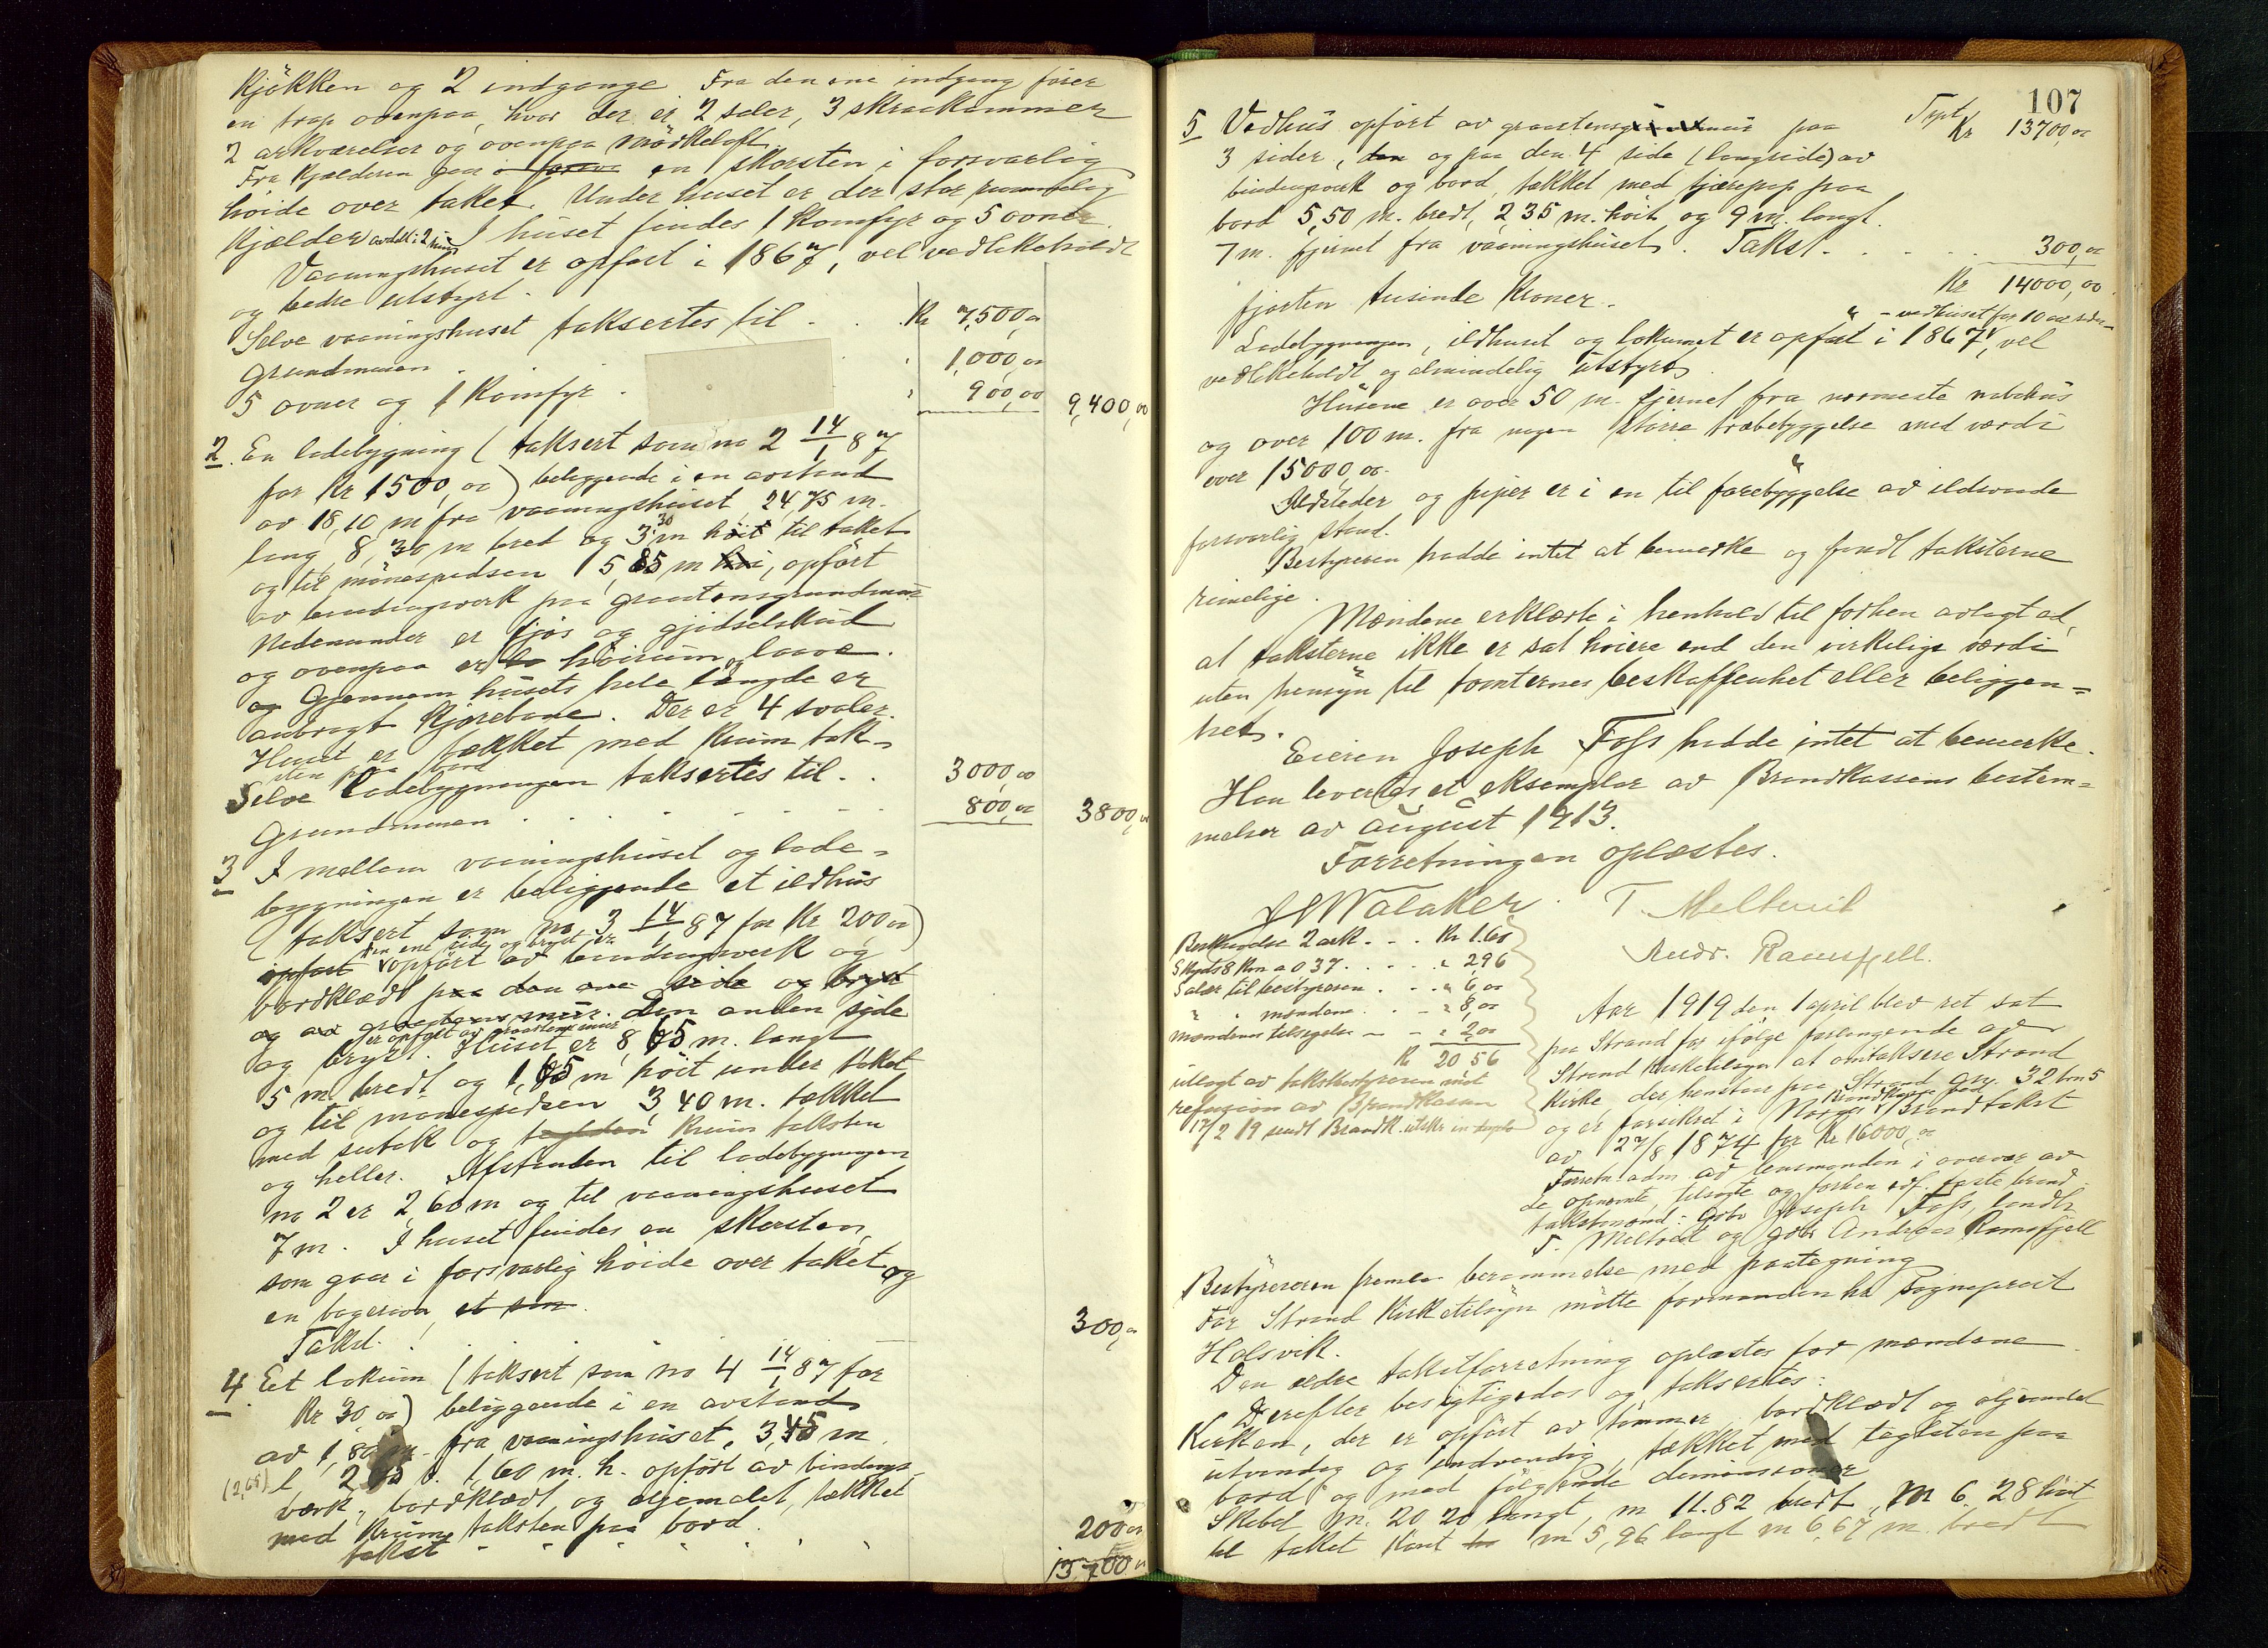 Kjökken og 2 indgange Fra den ene indgang fører
en trap ovenpaa, hvor der er 2 saler, 3 skraakammer
2 arkværelser og ovenpaa mörkeloft.
Fra Kjælderen gaar en skorsten i forsvarlig
höide over taket. Under huset er der stor rummelig
Kjælder avdelt i 2 rum I huset findes 1 Komfyr og 5 ovner
Vaaningshuset er opført i 1867, vel vedlikeholdt
og bedre utstyrt.
Selve vaaningshuset taksertes til . . Kr 7,500,00
Grundmuren . " 1,000,00
5 ovner og 1 Komfyr . " 900,00 9,400,00
2. En ladebygning (taksert som no 2 14/1 87
for Kr 1500,00) beliggende i en avstand
av 18,10 m fra vaaningshuset 24,75 m.
lang 8,30 m bred og 3,30 m höit til taket
og til mönespidsen 5,85 m höi, opført
av bindingsverk paa graastensgrundmur
Nedenunder er fjös og gjödselskud
og ovenpaa er höirum, laave.
og Gjennem husets hele længde er
anbragt Kjörebane. Der er 4 svaler.
Huset er tækket med Krum tak-
sten paa bord
Selve Ladebygningen taksertes til . . 3000,00
Grundmuren . . . . . 800,00 3800,00
3 I mellem vaaningshuset og lade-
bygningen er beliggende et ildhus
(taksert som no 3 14/1 87 for Kr 200,00)
den ene side og bryst er
opført opført av bindingsverk og
bordklædt paa den ene side og bryst
og av graastensmur. Den anden side
er opført av graastensmur
og bryst. Huset er 8,65 m. langt
5 m bredt og 1,65 m höit under taket
og til mönespidsen 3,40 m. tækket
med sutak og Krum taksten
og heller. Afstanden til ladebygningen
no 2 er 2,60 m og til vaaningshuset
7 m. I huset findes en skorsten,
som gaar i forsvarlig höide over taket og
en bagerovn
Takst. . . . . . 300,00
4. Eet lokum (taksert som no 4 14/1 87 for
Kr 30,00) beliggende i en avstand
av 1,80 m. fra vaaningshuset, 3,45 m
(2,65) l 1,60 m. h. opført av bindings
værk, bordklædt og oljemalet, tækket
med Krum taksten paa bord.
takst - - - - - 200,00
13,700,00
107
5 Vedhus opført av graastens mur paa Trpt. Kr 13700,00
3 sider, den og paa den 4 side (langside) av
bindingsverk og bord, tækket med tjærepap paa
bord 5,50 m. bredt, 2,35 m. höit og 9 m. langt.
7 m. fjernet fra vaaningshuset. Takst . . . . 300,00
Kr 14000,00
fjorten tusinde Kroner.
- vedhuset for 10 aar siden -
Ladebygningen, ildhuset og lokumet er opført i 1867, vel
vedlikeholdt og almindelig utstyrt.
Husene er over 50 m. fjernet fra nærmeste nabohus
og over 100 m. fra nogen större træbebyggelse med værdi
over 15000,00.
Ildsteder og piper er i en til forebyggelse av ildsvaade
forsvarlig stand.
Bestyreren hadde intet at bemerke og fandt taksterne
rimelige.
Mændene erklærte i henhold til forhen avlagt ed,
at taksterne ikke er sat höiere end den virkelige værdi
uten hensyn til tomternes beskaffenhet eller beliggen=
het.
Eieren Joseph Foss hadde intet at bemerke.
Han levertes et eksemplar av Brandkassens bestem=
melser av august 1913.
Forretningen oplæstes.
Walaker T. Meltveit
Andr. Ramsfjell.
Beskrivelse 2 ark . . . Kr 1.60
Skyds 8 Km a 0 37 . . . . " 2,96
Salær til bestyreren . . . " 6,00
" " mændene . . - " 8,00
mændenes tilsigelse - - " 2,00
Kr 20 56
utlagt av takstbestyreren mot
refusion av Brandkassen
17/2 19 sendt Brandk. utskr in duplo
Aar 1919 den 1 april blev ret sat
paa Strand for ifølge forlangende av
Strand Kirketilsyn at omtaksere Strand
Kirke der henstaar paa Strand gnr. 32 bno 5
og er forsikret i Norges Brandkasse efter Brandtakst
av 27/8 1874 for Kr 16000,00
Forretn. adm. av lensmanden i overvær av
de opnævnte, tilsagte og forhen edf. faste brand-
takstmænd: Gbr Joseph Foss, landh
T. Meltveit og gbr Andreas Ramsfjell
Bestyreren fremla berammelse med paategning
For Strand Kirketilsyn mötte formanden hr sogneprest
Halsvik.
Den ældre takstforretning oplæstes for mændene.
Derefter besigtigedes og taksertes:
Kirken, der er opført av tömmer, bordklædt og oljemalet
utvendig og indvendig, tækket med taglsten paa
bord og med fölgende dimensioner
Skibet m. 20 20 langt, m 11.82 bredt, m 6.28 höit
til taket Koret m 5,96 langt m 6,67 m. bredt